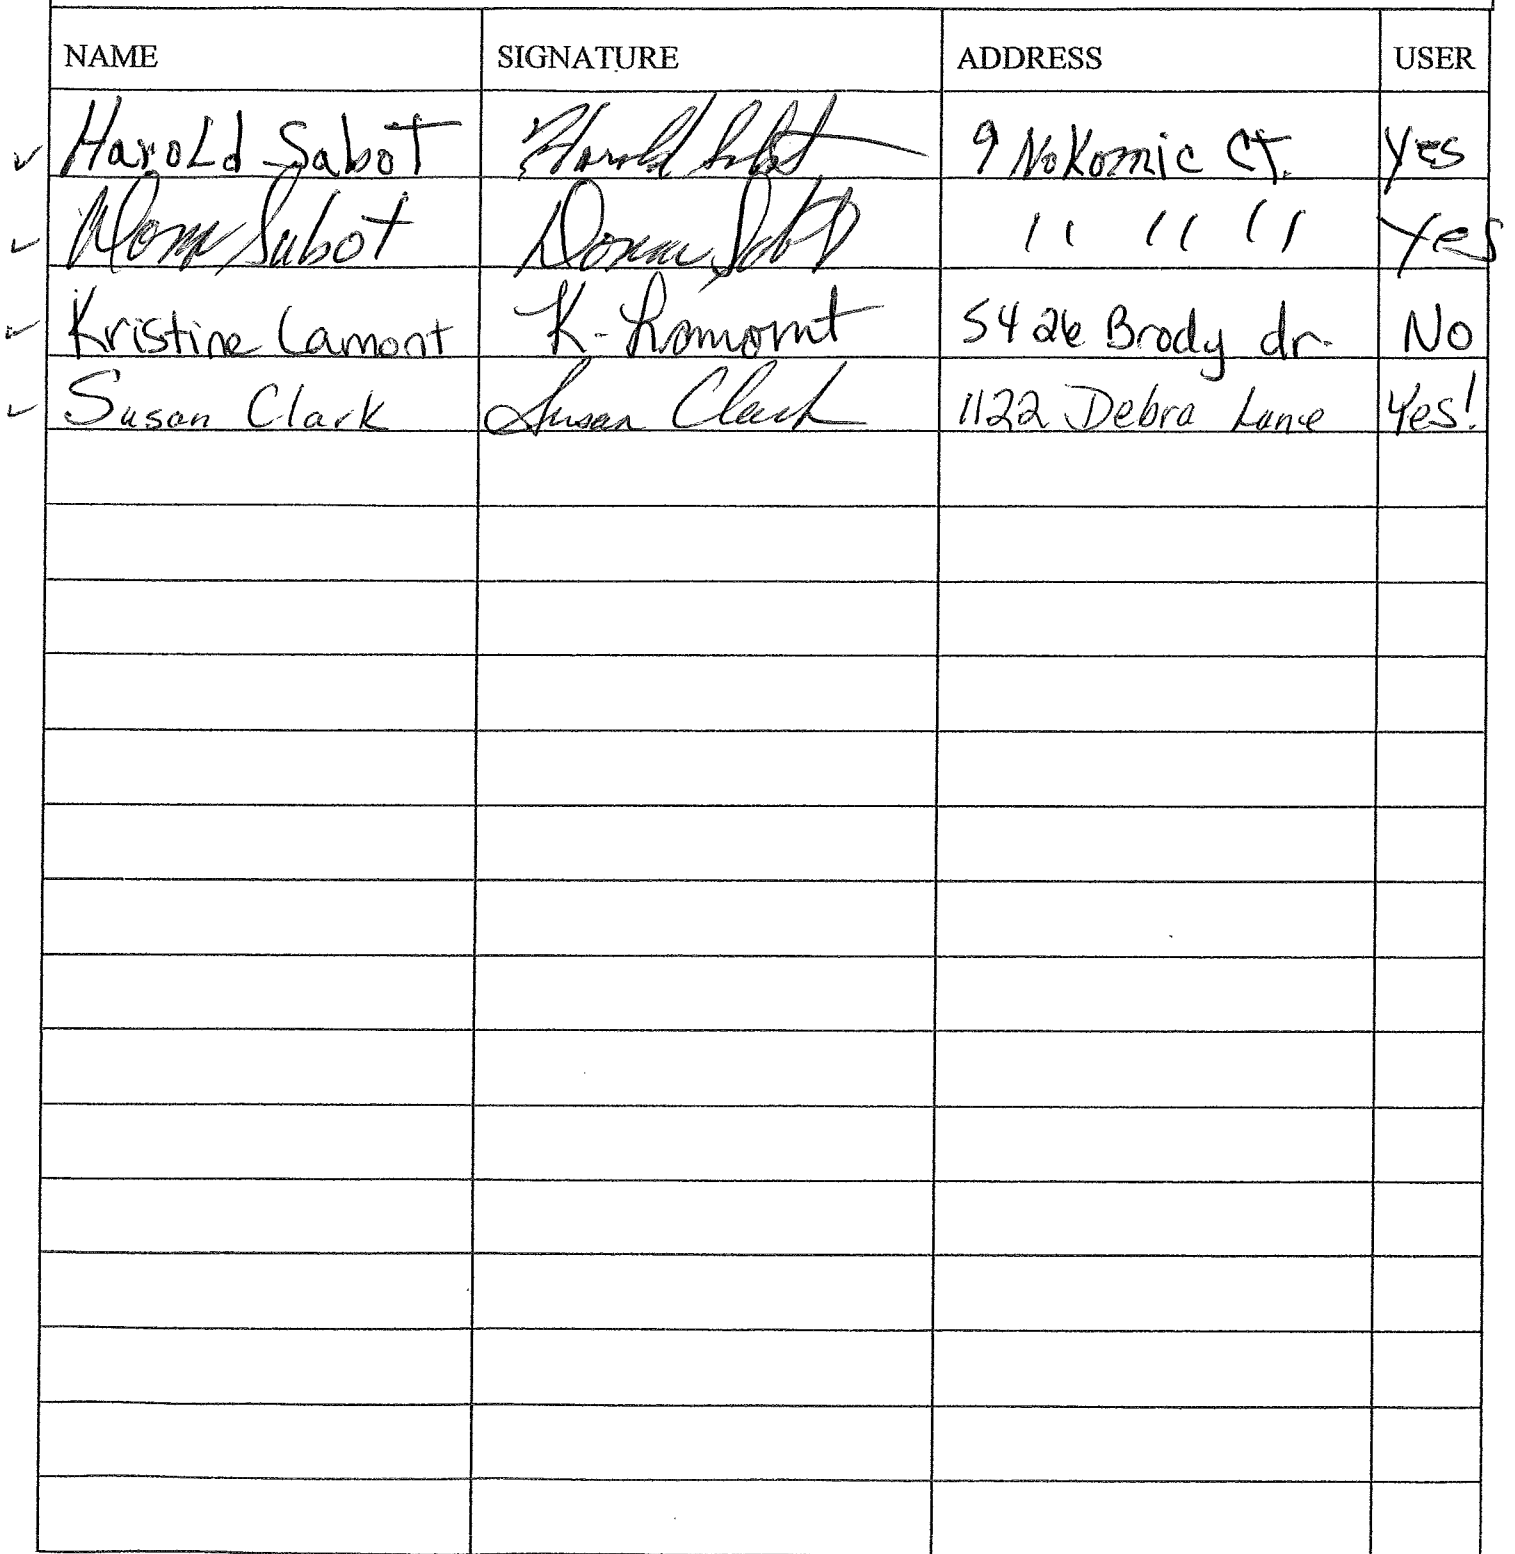 NAME SIGNATURE ADDRESS USER
✓ Harold Sabot Harold Sabot 9 Nokomic CT. Yes
✓ Donna Sabot Donna Sabot " " " Yes
✓ Kristine Lamont K. Lamont 5426 Brody dr. No
✓ Susan Clark Susan Clark 1122 Debra Lane Yes!